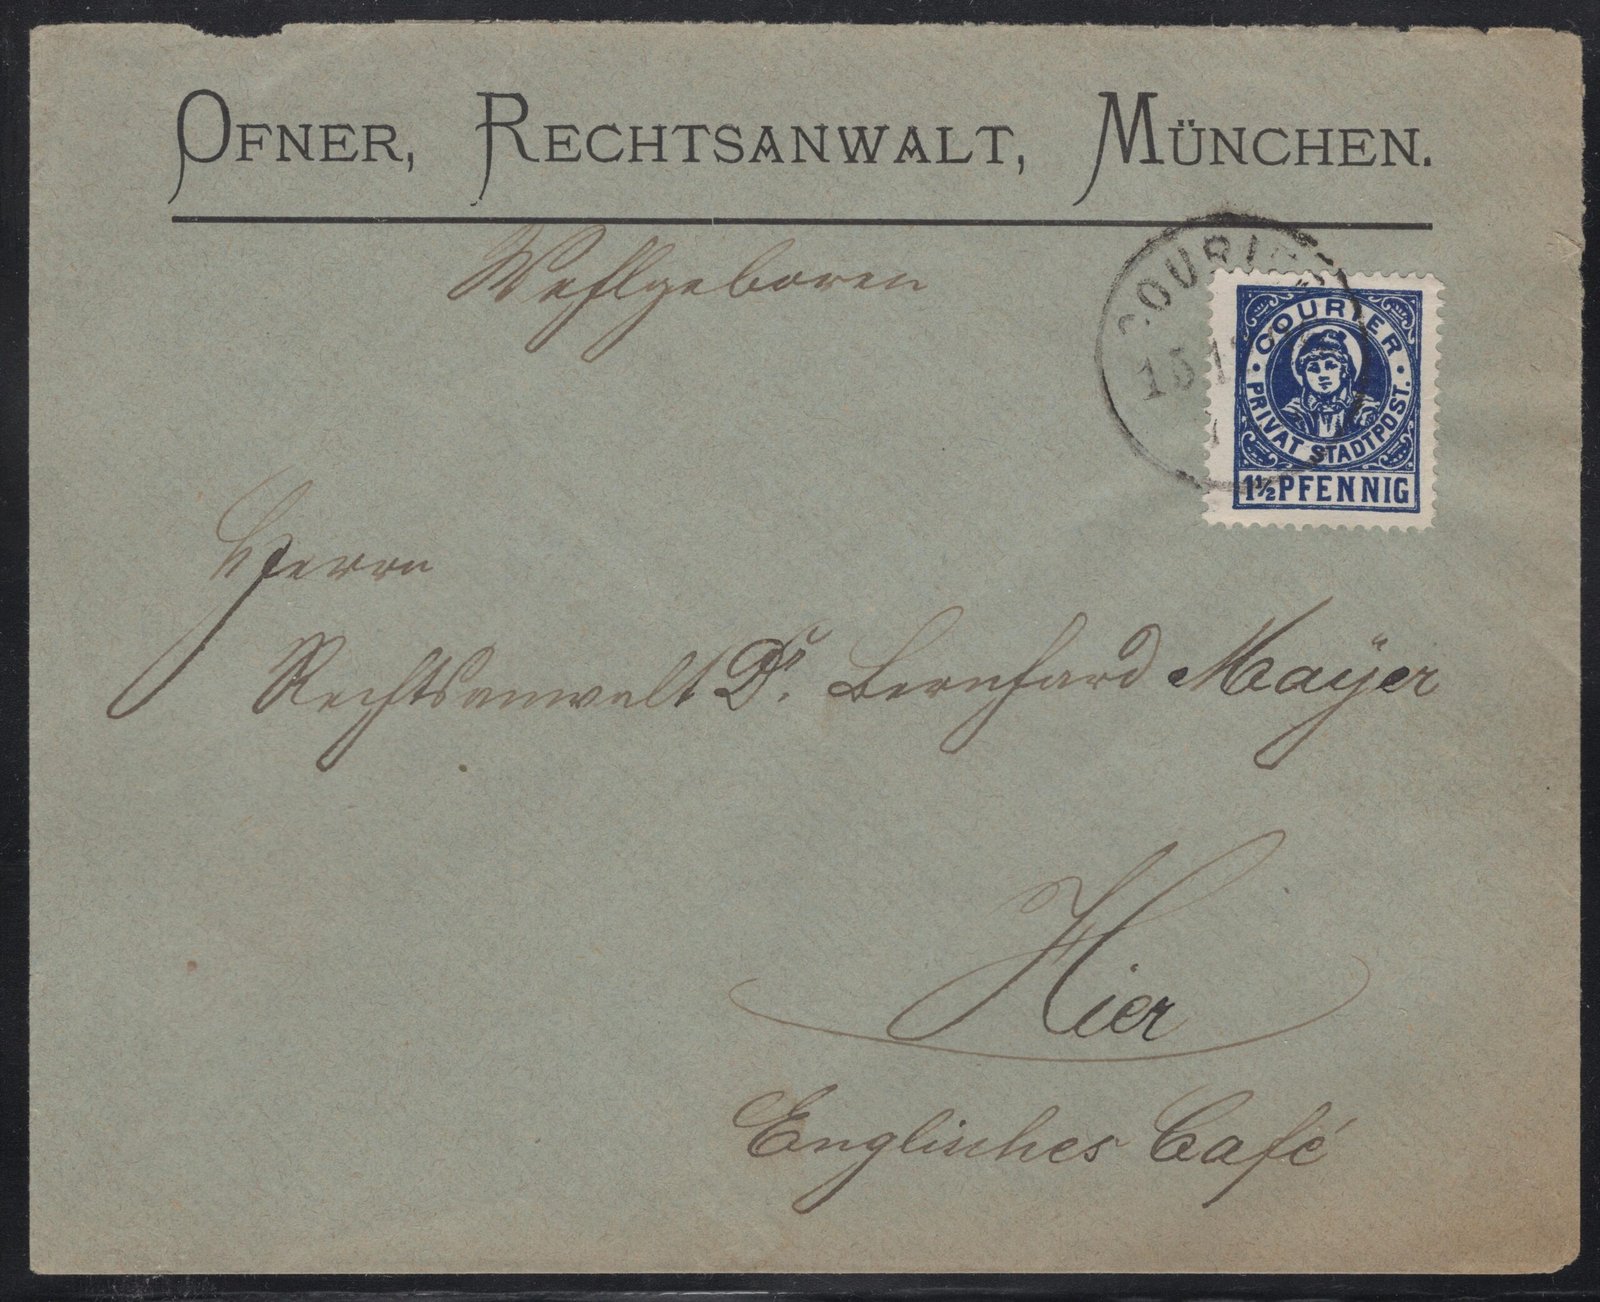 OFNER, RECHTSANWALT, MÜNCHEN.
Wohlgeboren
COURIER
15 1
COURIER
PRIVAT STADTPOST.
1½ PFENNIG
Herrn
Rechtsanwalt Dr. Bernhard Mayer
Hier
Englisches Café